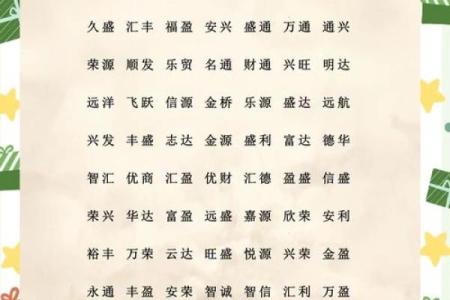 久盛 汇丰 福盈 安兴 盛通 万通 通兴
荣源 顺发 乐贸 名通 财通 兴旺 明达
远洋 飞跃 信源 金桥 乐源 盛达 远航
兴发 丰盛 志达 金源 盛利 富达 德华
智汇 优商 汇盈 优财 汇德 盈盛 信盛
荣兴 华达 富盈 远盛 嘉源 欣荣 安利
裕丰 万荣 云达 旺盛 悦源 兴荣 金盈
永通 丰盈 安荣 智诚 智信 汇利 万盈